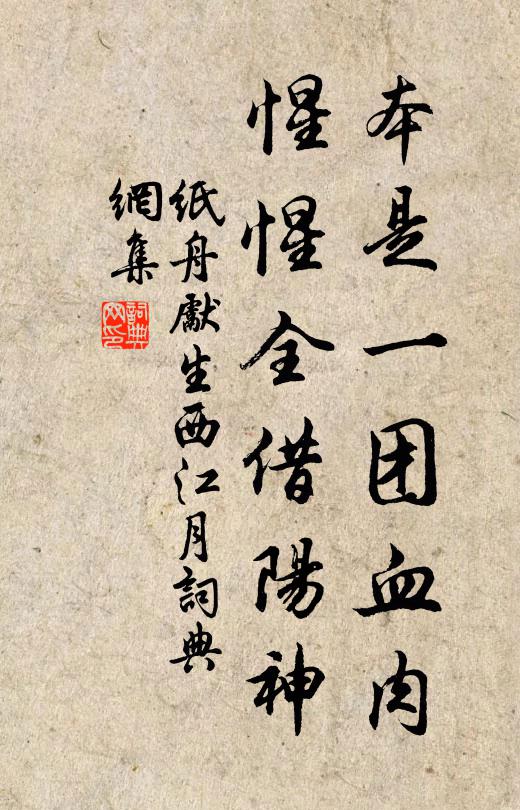 本是一团血肉
惺惺全借陽神
紙舟獻生西江月詞典
網集
詞典
网印